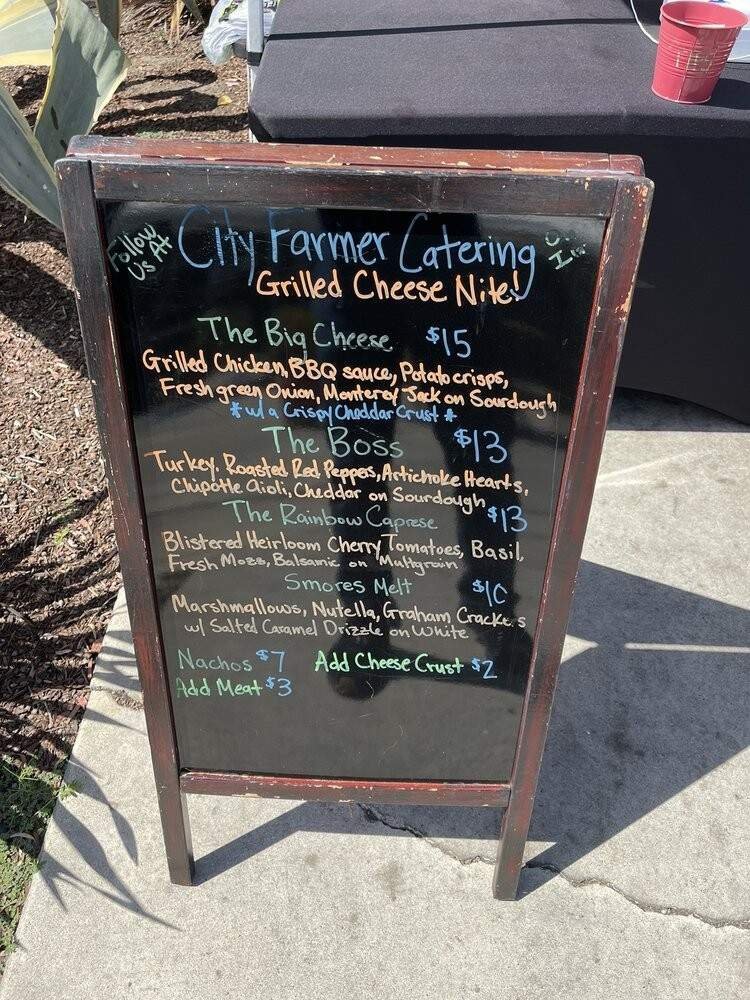 Follow Us At
City Farmer Catering
Grilled Cheese Nite!
The Big Cheese $15
Grilled Chicken, BBQ sauce, Potato crisps,
Fresh green Onion, Monterey Jack on Sourdough
* w/ a Crispy Cheddar Crust *
The Boss $13
Turkey, Roasted Red Peppers, Artichoke Hearts,
Chipotle aioli, Cheddar on Sourdough
The Rainbow Caprese $13
Blistered Heirloom Cherry Tomatoes, Basil,
Fresh Mozz, Balsamic on Multgrain
Smores Melt $10
Marshmallows, Nutella, Graham Crackers
w/ Salted Caramel Drizzle on White
Nachos $7 Add Cheese Crust $2
Add Meat $3